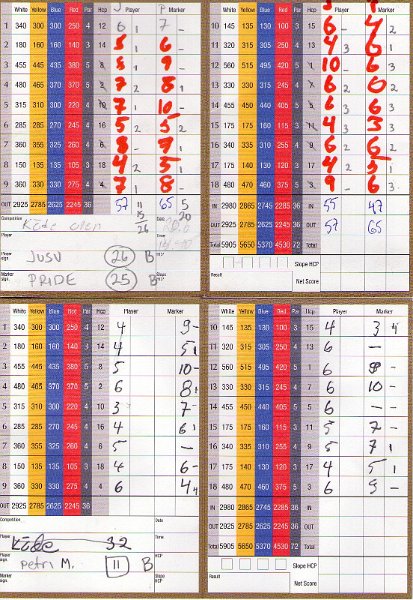 White Yellow Blue Red Par Hcp Player Marker
1 340 300 300 250 4 12 6 7 -
2 180 160 160 140 3 14 5 6 -
3 455 445 435 380 5 5 9 -
4 480 465 405 370 5 2 7 8 1
5 315 310 300 220 4 10 7 10 -
6 285 285 270 245 4 16 5 5 2
7 360 355 325 260 4 8 - 9 1
8 150 135 105 3 18 4 5 1
9 360 330 300 275 4 7 8 1
OUT 2925 2785 2625 2245 36 57 65 5
Competition
Player
JUSU 26 B
Marker sign.
PRIDE 25 B
10 145 135 130 100 3 15 6 - 4 2
11 320 315 305 250 4 13 4 3 6 1
12 455 440 420 285 5 1 10 - 6 3
13 330 330 315 245 4 7 6 2 6 2
14 455 450 440 405 5 6 3 6 3
15 175 160 115 3 4 3 3 3
16 340 335 310 255 4 9 6 2 6 2
17 175 140 130 120 3 17 4 2 5 1
18 480 470 460 375 5 3 9 - 6 3
IN 2980 2865 2785 2285 36 IN 55 47
OUT 2925 2785 2625 2245 36 OUT 57 65
Total 5905 5650 5370 4530 72 Total
Slope HCP
Result
Net Score
White Yellow Blue Red Par Hcp Player Marker
1 340 300 300 250 4 12 4 9 -
2 180 160 160 140 3 14 4 5 1
3 455 445 435 380 5 5 10 -
4 480 465 405 370 5 2 6 8 1
5 315 310 300 220 4 10 3 7 -
6 285 285 270 245 4 16 4 6 1
7 360 355 325 260 4 5 -
8 150 135 105 3 18 4 6 -
9 360 330 300 275 4 6 4 4
OUT 2925 2785 2625 2245 36 OUT
Competition Date
Player Köde 32 Time
Player sign. Petri M. 11 B Hcp
Marker sign. Slope Hcp
White Yellow Blue Red Par Hcp Player Marker
10 145 135 130 100 3 15 4 3 4
11 320 315 305 250 4 13 6 -
12 455 440 420 285 5 1 6 8 -
13 330 330 315 245 4 7 6 10 -
14 455 450 440 405 5 6 - -
15 175 160 115 3 11 5 7 -
16 340 335 310 255 4 9 5 7 1
17 175 140 130 120 3 17 4 5 1
18 480 470 460 375 5 3 6 9 -
IN 2980 2865 2785 2285 36 IN
OUT 2925 2785 2625 2245 36 OUT
Total 5905 5650 5370 4530 72 Total
Slope HCP
Result
Net Score